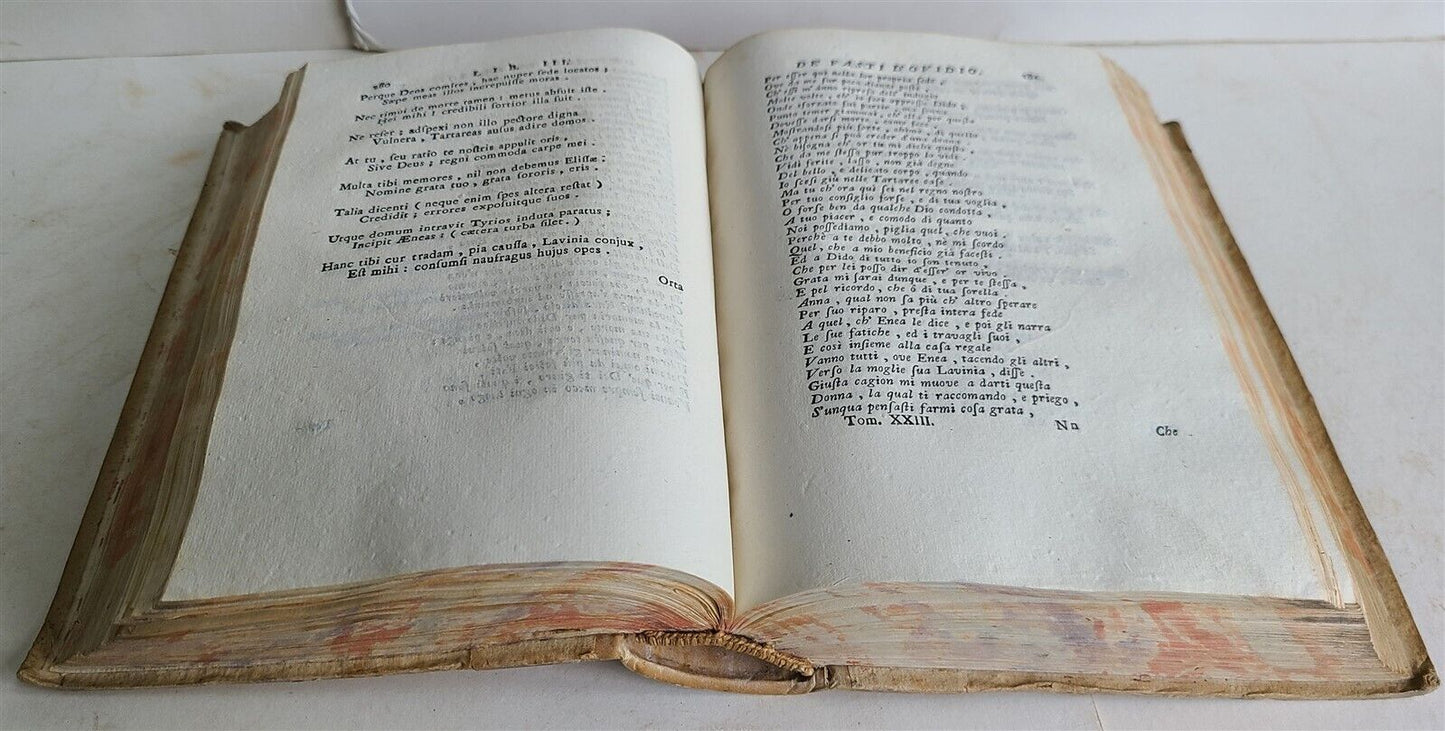 280 L I B. III.
Perque Deos comites, hac nuper sede locatos;
Sæpe meas illos increpuisse moras.
Nec timui de morte tamen: metus abfuit iste.
Hei mihi! credibili fortior illa fuit.
Ne refer; adspexi non illo pectore digna
Vulnera, Tartareas ausus adire domos.
At tu, seu ratio te nostris appulit oris.
Sive Deus; regni commoda carpe mei.
Multa tibi memores, nil non debemus Elissæ;
Nomine grata tuo, grata sororis, eris.
Talia dicenti (neque enim spes altera restat)
Credidit; errores exposuitque suos.
Utque domum intravit Tyrios induta paratus;
Incipit Æneas: (cætera turba silet.)
Hanc tibi cur tradam, pia caussa, Lavinia conjux,
Est mihi: consumsi naufragus hujus opes.
Orta
DE FASTI D'OVIDIO.
Per esser qui nella lor propria sede;
Che da me per poca dianzi posti,
Ch'essi m'anno ripreso dell'indugio
Molte volte, che vi fore oppresso Dido;
Onde sforzato fui partir. Nè
Punto temer giammai, che ella per questo
Dovesse darsi morte, come fece,
Mostrandosi più forte, ohimè, di quello
Ch'appena si può creder d'una donna.
Nè bisogna ch'or tu mi diche questo.
Che da me stessa pur troppo lo vidi.
Vidi ferite, lasso, non già degne
Del bello, e delicato corpo, quando
Io scesi giù nelle Tartaree case.
Ma tu ch'ora quì sei nel regno nostro
Per tuo consiglio forse, e di tua voglia,
O forse ben da qualche Dio condotta,
A tuo piacer, e comodo di quanto
Noi possediamo, piglia quel, che vuoi.
Perchè a te debbo molto, nè mi scordo
Quel, che a mio beneficio già facesti.
Ed a Dido di tutto io son tenuto,
Che per lei posso dir d'esser' or vivo.
Grata mi sarai dunque, e per te stessa,
E pel ricordo, che ò di tua sorella.
Anna, qual non sa più ch'altro sperare
Per suo riparo, presta intera fede
A quel, ch'Enea le dice, e poi gli narra
Le sue fatiche, ed i travagli suoi,
E così insieme alla casa regale
Vanno tutti, ove Enea, tacendo gli altri,
Verso la moglie sua Lavinia, disse.
Giusta cagion mi muove a darti questa
Donna, la qual ti raccomando, e priego,
S'unqua pensasti farmi cosa grata,
Tom. XXIII. Nn Che